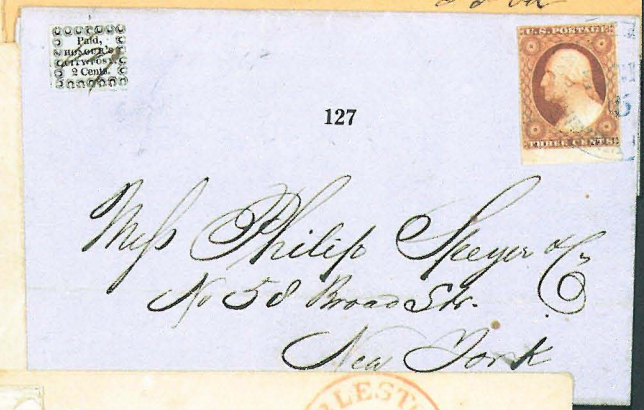 Paid,
HONOUR'S
CITY POST.
2 Cents.
U.S. POSTAGE
THREE CENTS
127
Mess Philip Speyer & Co
No 58 Broad Str.
New York
LEST